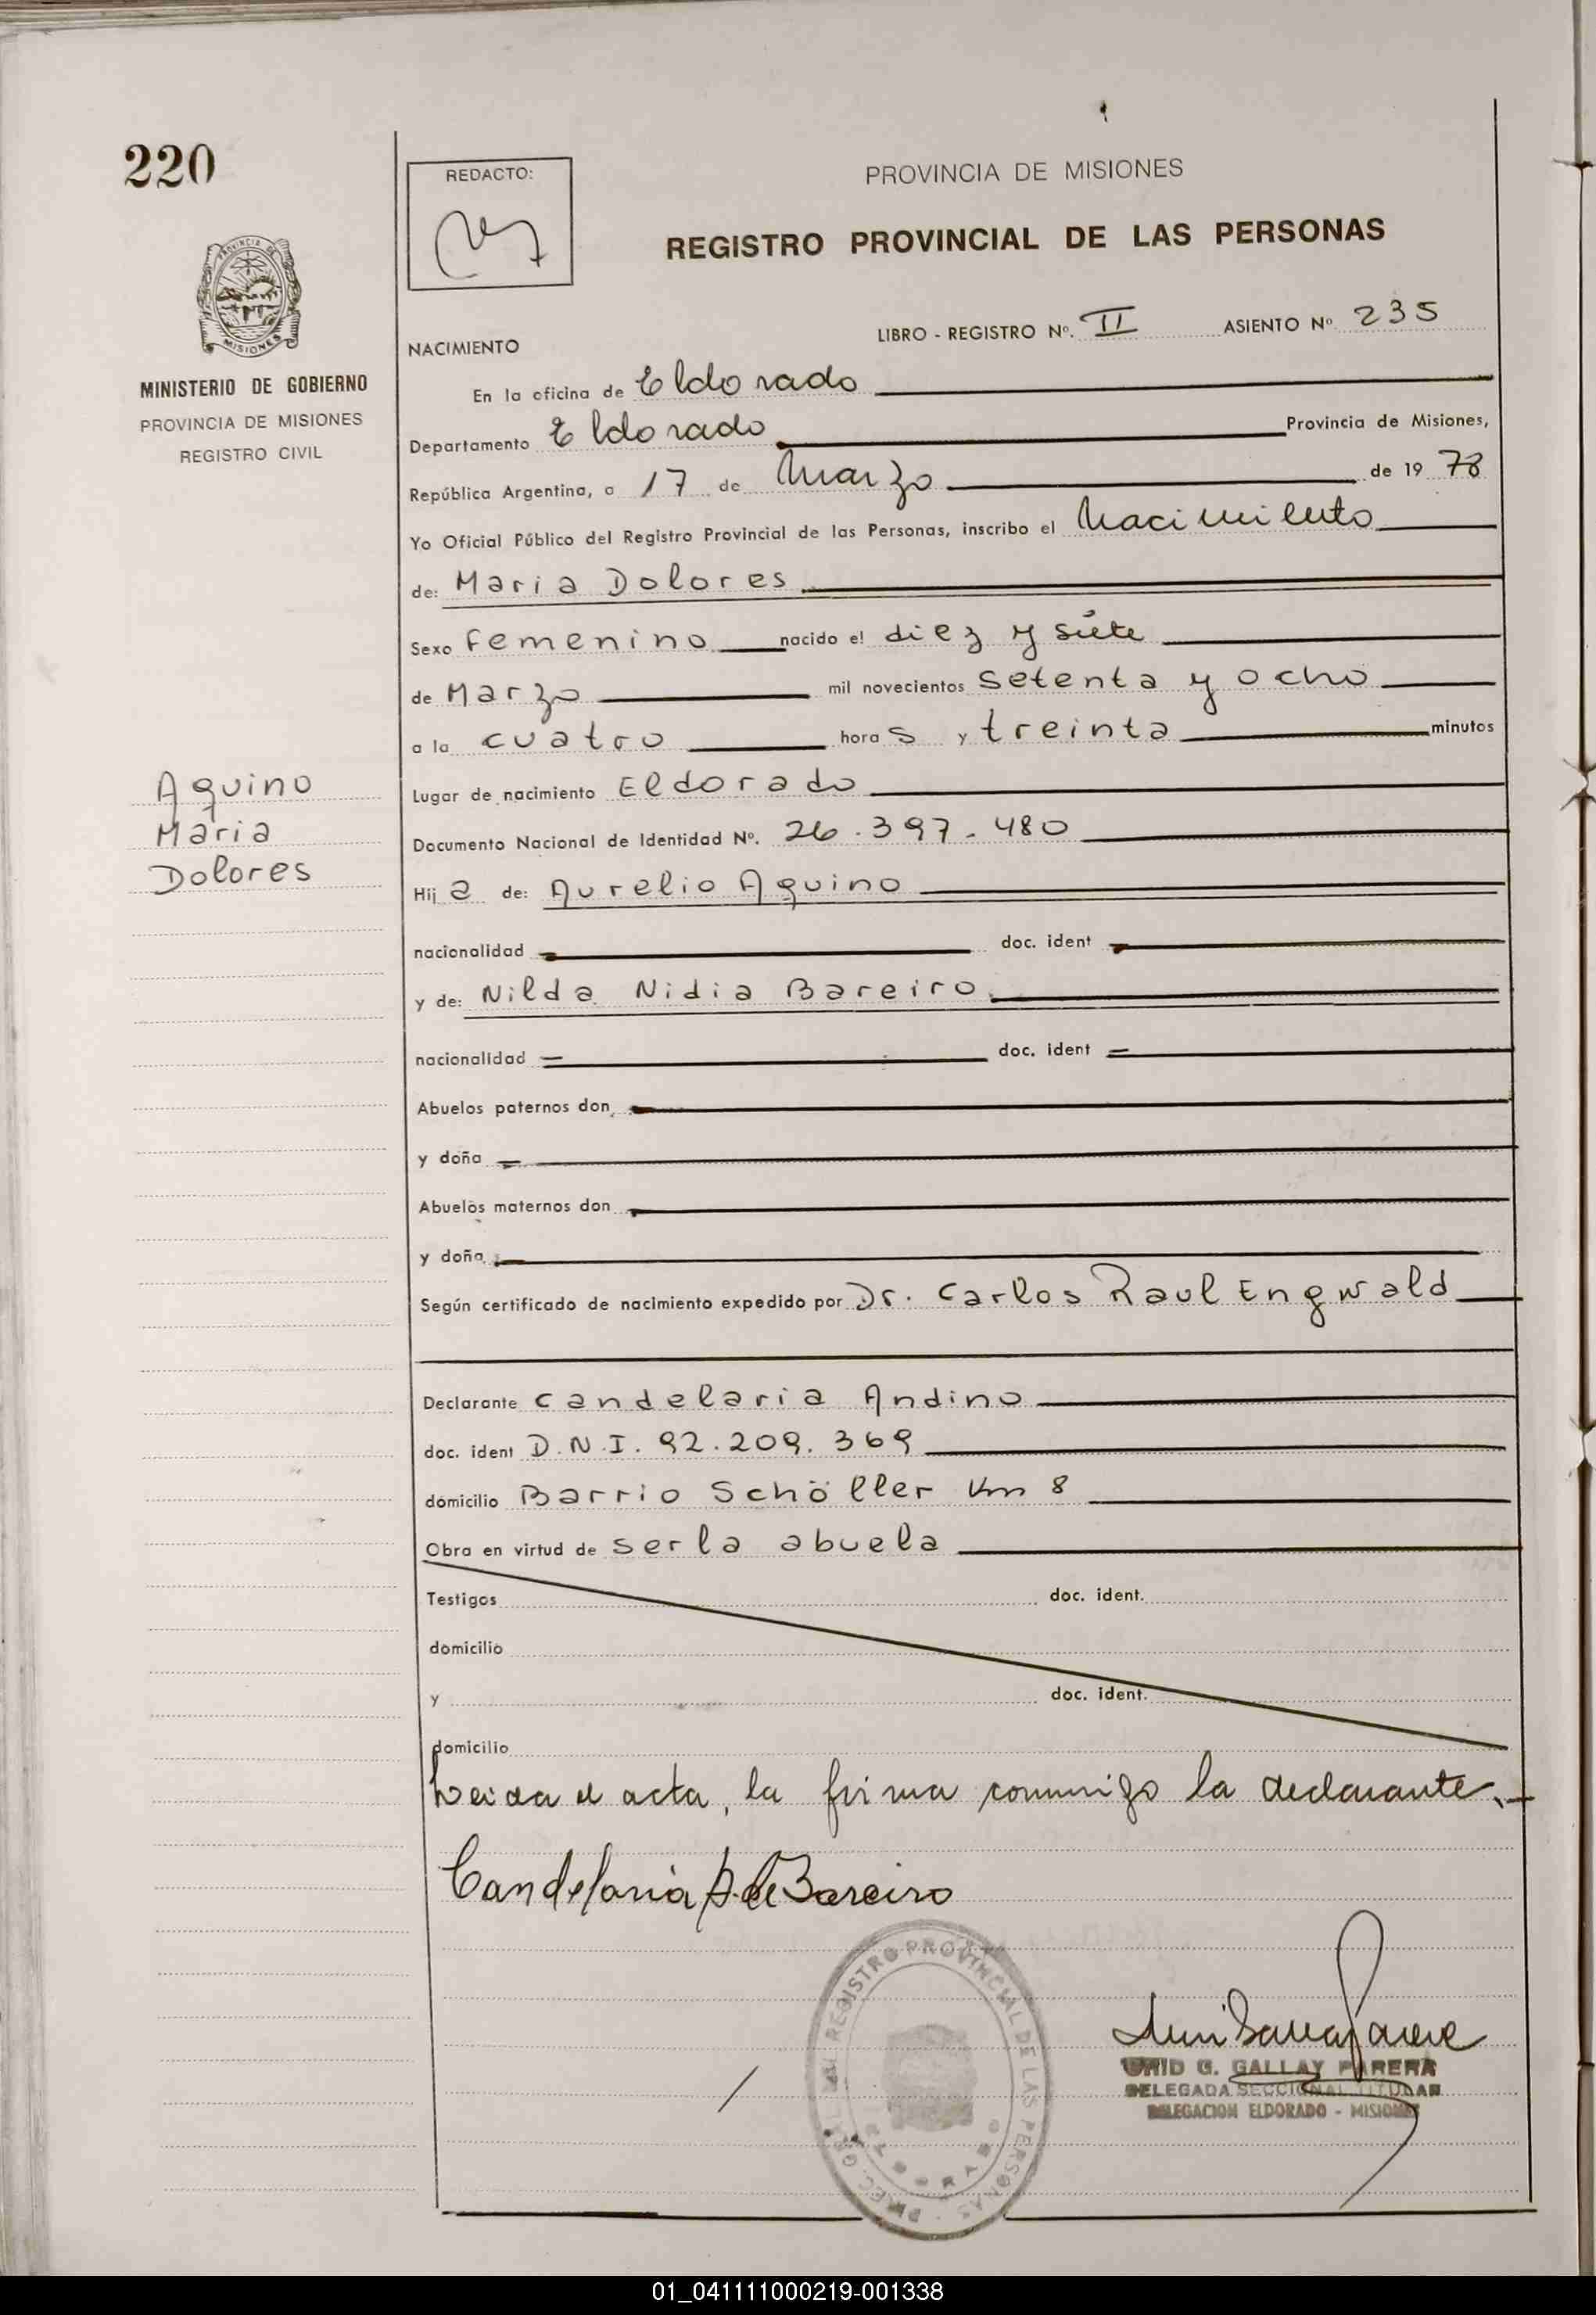 220
REDACTO:
PROVINCIA DE MISIONES
REGISTRO PROVINCIAL DE LAS PERSONAS
LIBRO - REGISTRO Nº. II ASIENTO Nº 235
MINISTERIO DE GOBIERNO
PROVINCIA DE MISIONES
REGISTRO CIVIL
NACIMIENTO
En la oficina de Eldorado
Departamento Eldorado Provincia de Misiones,
República Argentina, a 17 de Marzo de 19 78
Yo Oficial Público del Registro Provincial de las Personas, inscribo el Nacimiento
de: Maria Dolores
Sexo Femenino nacido el diez y siete
de Marzo mil novecientos setenta y ocho
a la cuatro hora s y treinta minutos
Aquino
Maria
Dolores
Lugar de nacimiento Eldorado
Documento Nacional de Identidad Nº. 26.397.480
Hij a de: Aurelio Aquino
nacionalidad doc. ident
y de: Nilda Nidia Bareiro
nacionalidad doc. ident
Abuelos paternos don
y doña
Abuelos maternos don
y doña
Según certificado de nacimiento expedido por Dr. Carlos Raul Engwald
Declarante Candelaria Andino
doc. ident D.N.I. 92.209.369
domicilio Barrio Schöller Km 8
Obra en virtud de ser la abuela
Testigos doc. ident.
domicilio
y doc. ident.
domicilio
Leida el acta, la firma conmigo la declarante.
Candelaria A. de Bareiro
REGISTRO PROVINCIAL DE LAS PERSONAS
ELDORADO
G. GALLAY PARERA
DELEGADA SECCIONAL TITULAR
DELEGACION ELDORADO - MISIONES
01_041111000219-001338